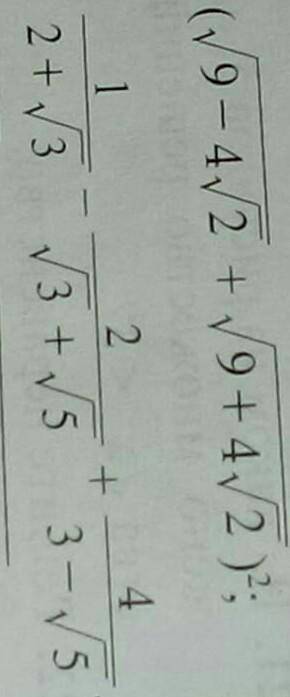 (√(9 − 4√2) + √(9 + 4√2))²;
1/(2 + √3) − 2/(√3 + √5) + 4/(3 − √5)